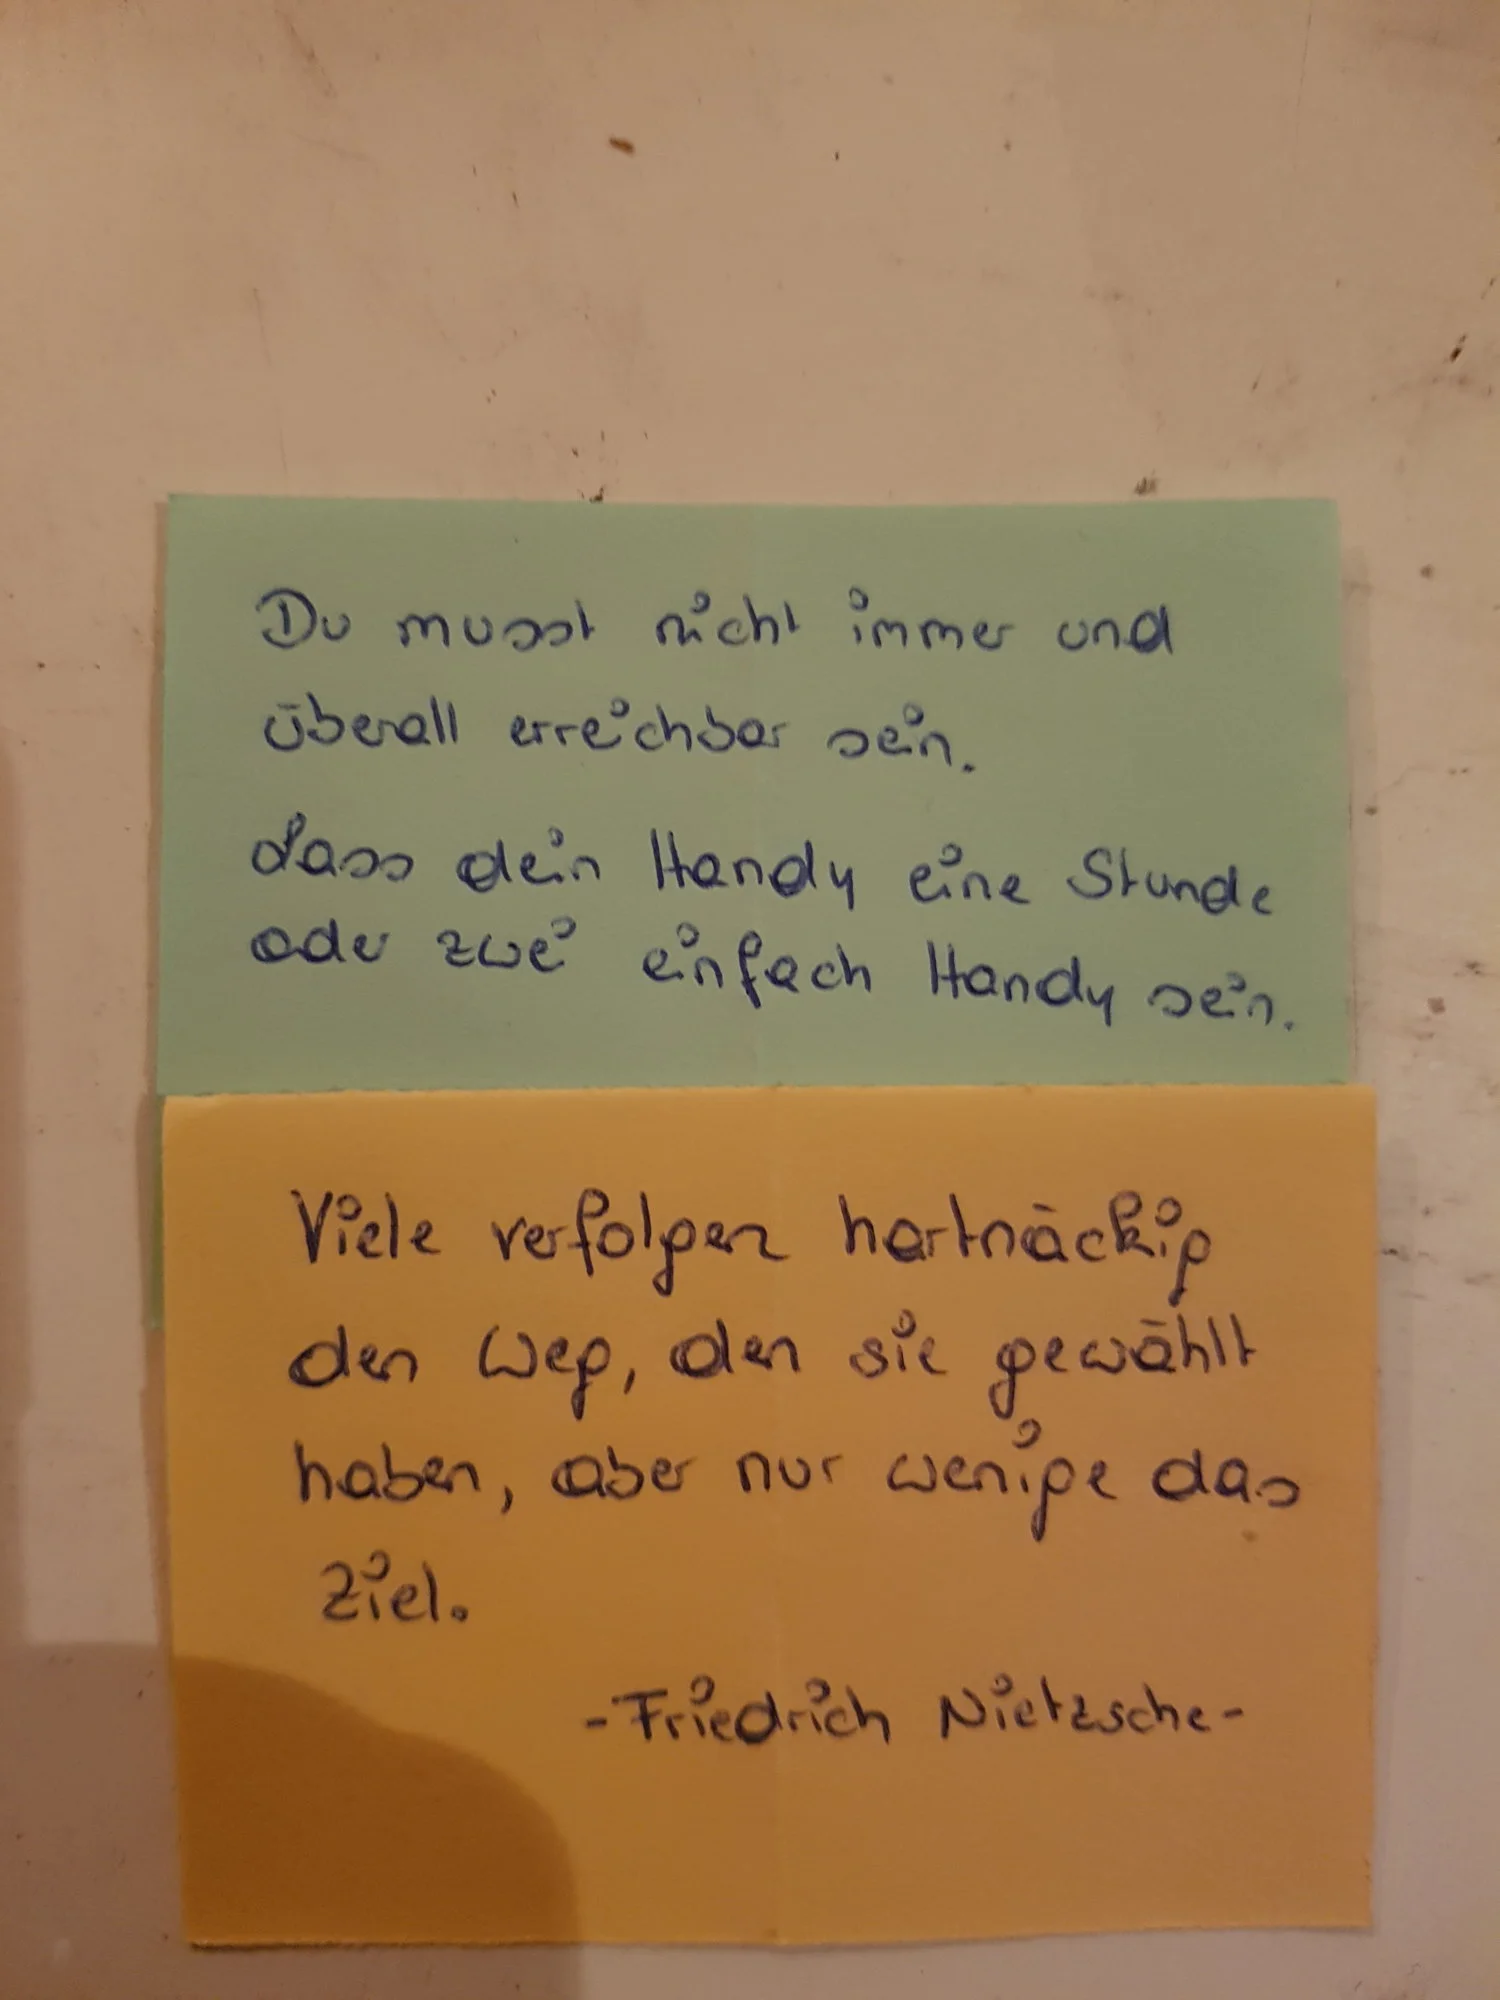 Du musst nicht immer und
überall erreichbar sein.
Lass dein Handy eine Stunde
oder zwei einfach Handy sein.
Viele verfolgen hartnäckig
den Weg, den sie gewählt
haben, aber nur wenige das
Ziel.
-Friedrich Nietzsche-